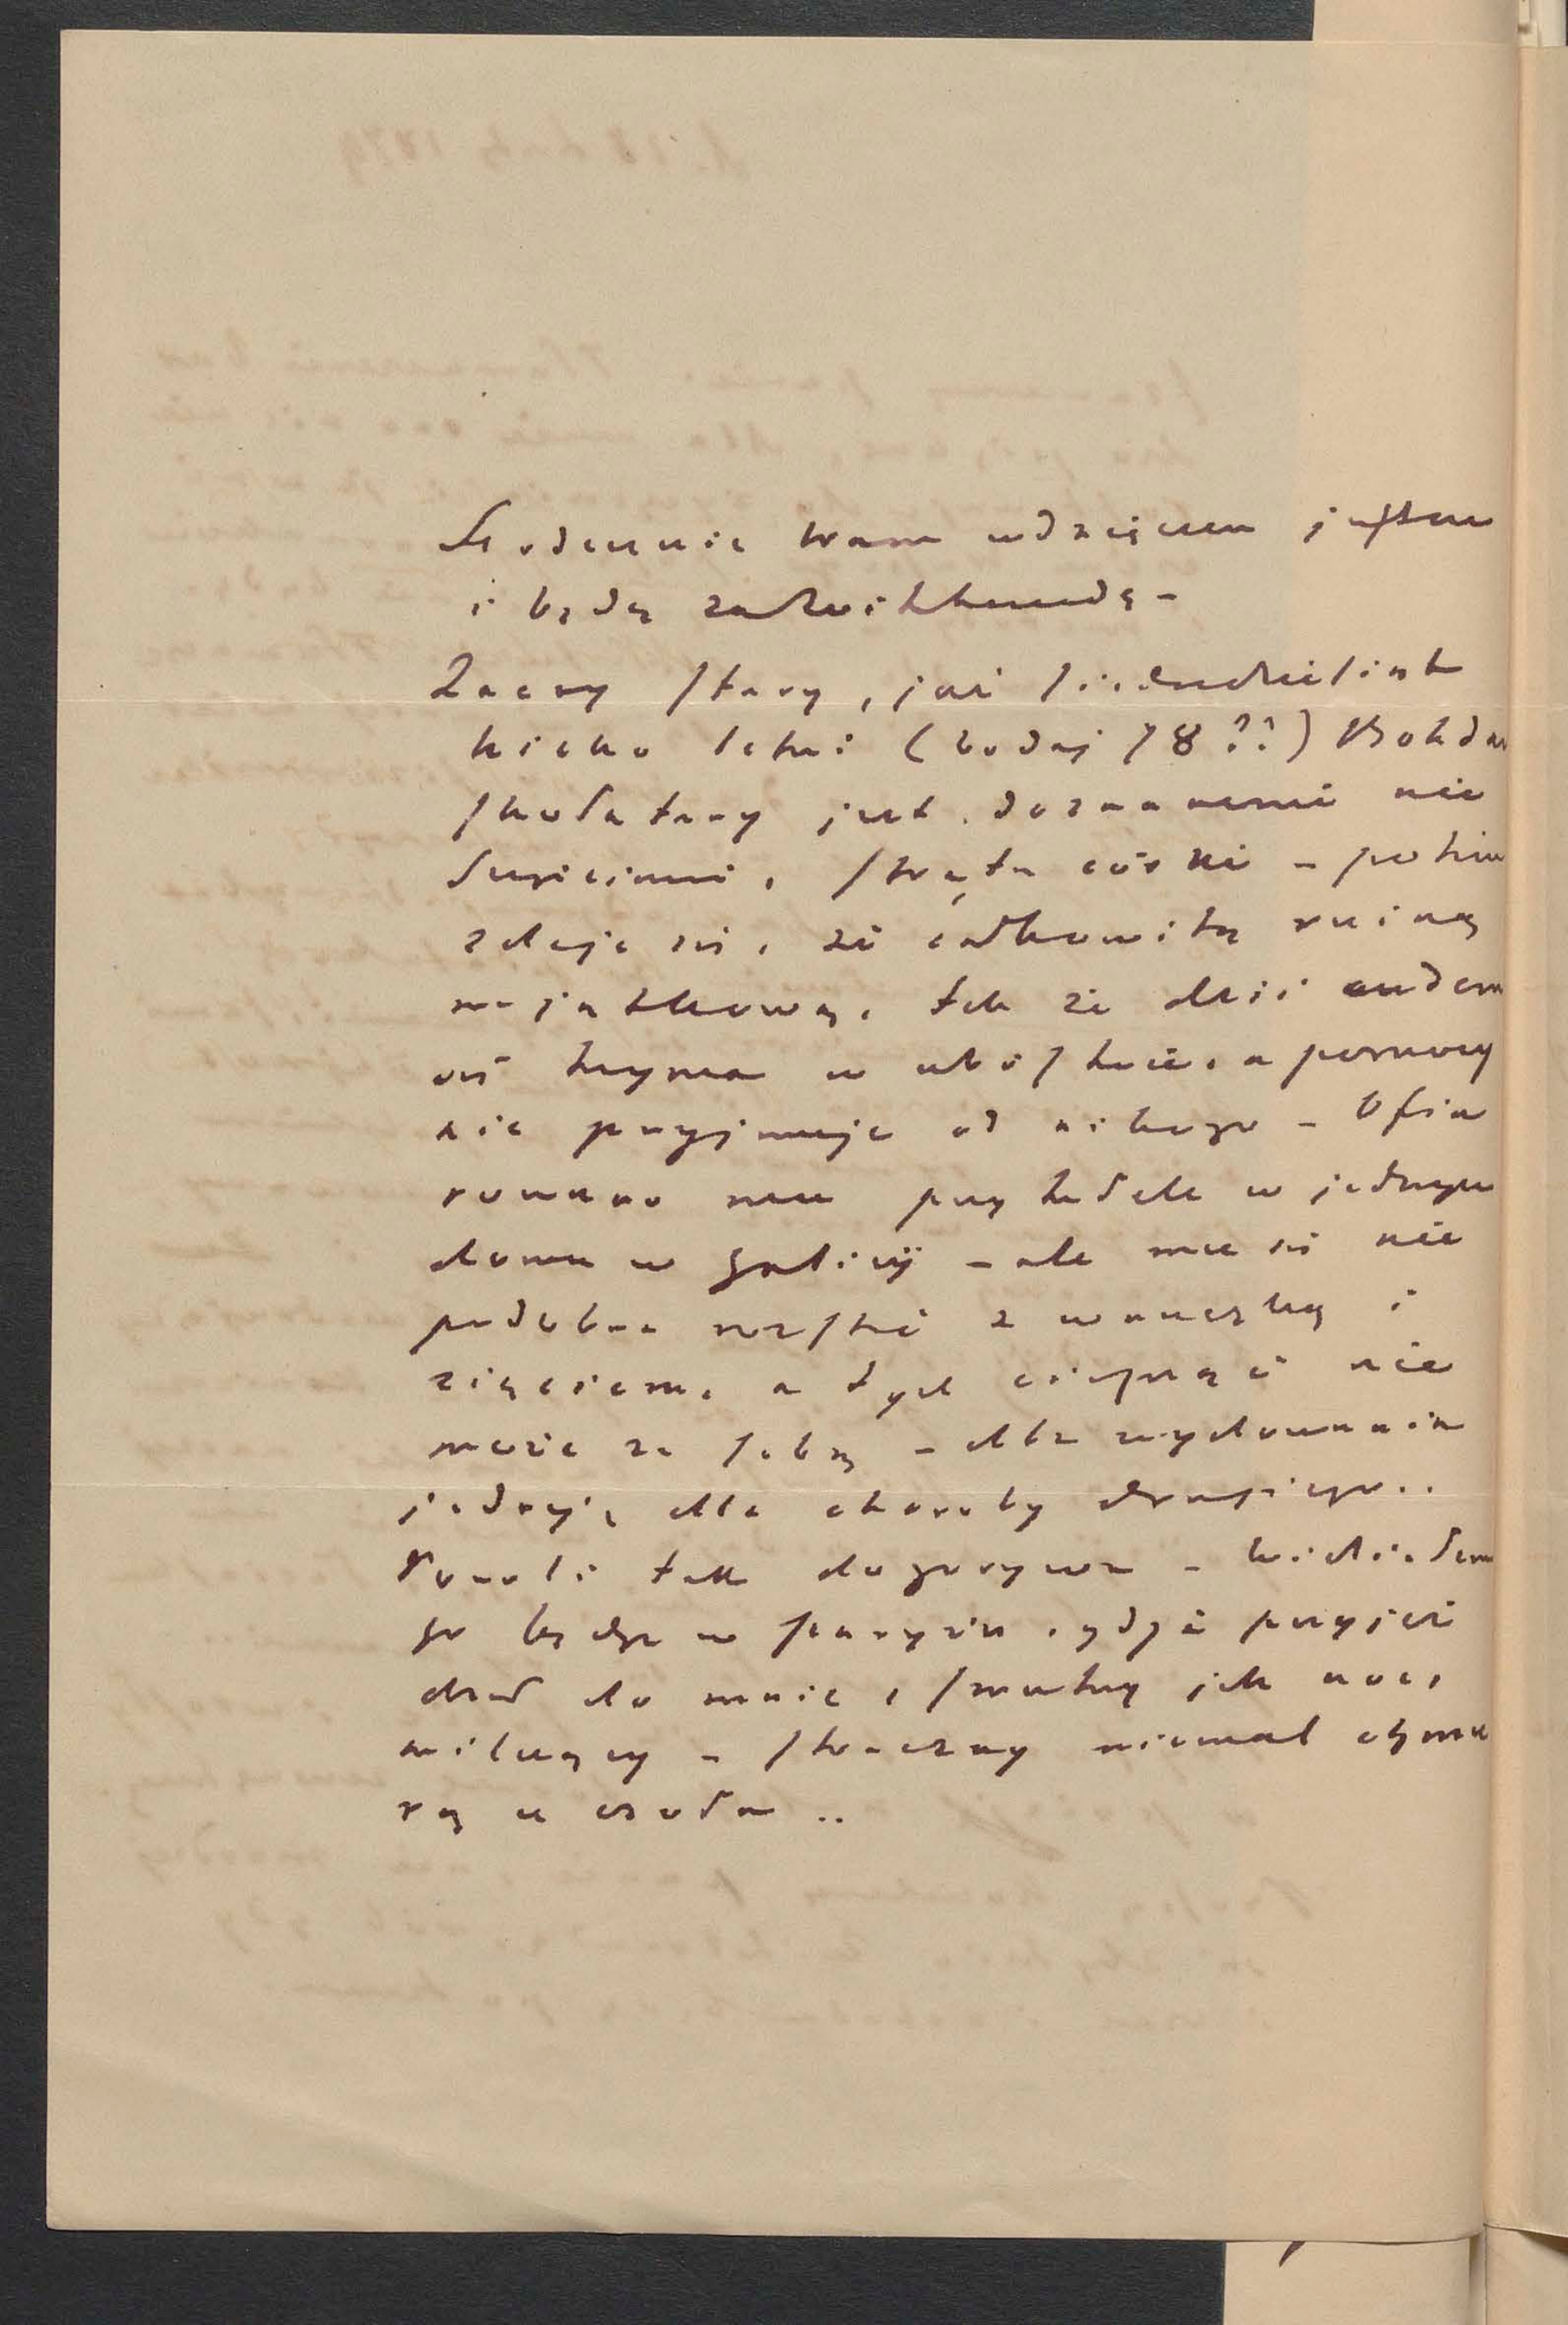 Serdecznie Wam wdzięczen jestem
i będę za Zwiękkundę -
Zacny stary, już siedmdziesiąt
kilko letni (bodaj 78??) Bohdan
skołatany jest doznanemi nie
szczęściami, stratą córki - potem
zdaje się, że całkowitą ruiną
majątkową, tak że dziś cudem
się trzyma w ubóstwie, a pomocy
nie przyjmuje od nikogo - Ofia
rowano mu przytułek w jednym
domu w Galicyi - ale mu się nie
podobna rozstać z wnuczką i
zięciem, a tych ciągnąć nie
może za sobą - dla wychowania
jednéj, dla choroby drugiego..
Powoli tak dogorywa - Widziałem
go będąc w Paryżu, gdyż przyjeż
dżał do mnie, smutny jak noc,
milczący - straszny niemal chmu
rą u czoła ..